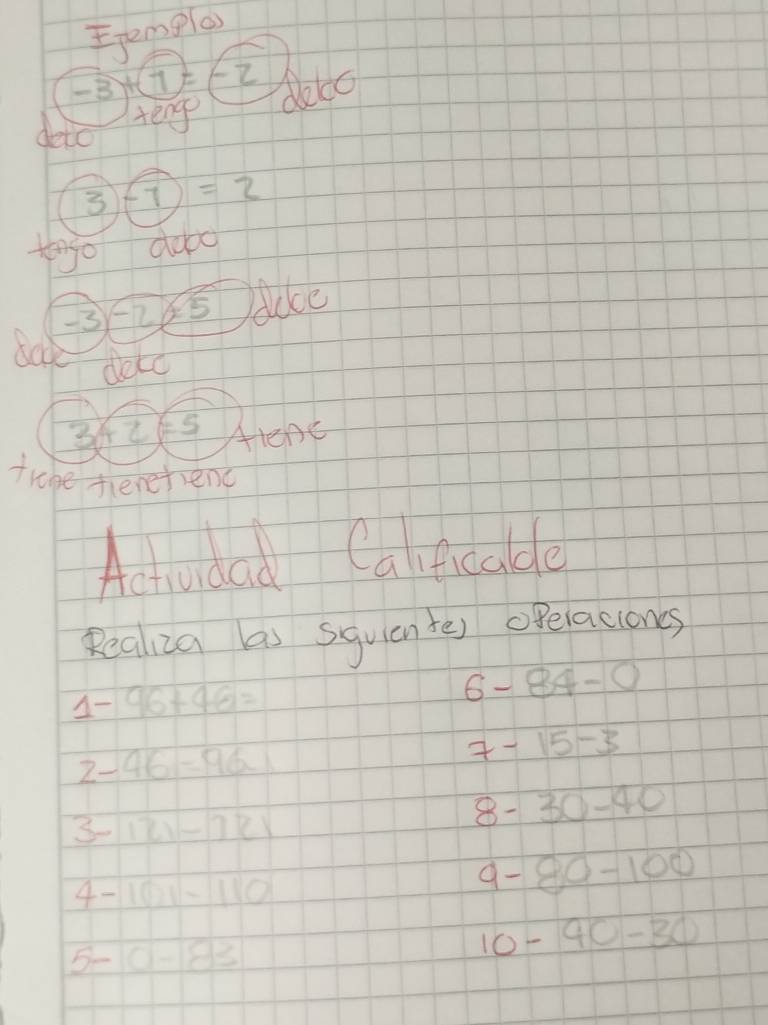 Ejemplos
-3 + 1 = -2 debo
debo tengo
3 - 1 = 2
tengo debo
-3 - 2 = 5 debe
debe debe
3 + 2 = 5 tiene
tiene tiene tiene
Actividad Calificable
Realiza las siguientes operaciones
1- 96+46=
6- 84-0
2- 46-96
7- 15-3
3- 121-721
8- 30-40
4- 101-110
9- 80-100
5- 0-83
10- 90-30